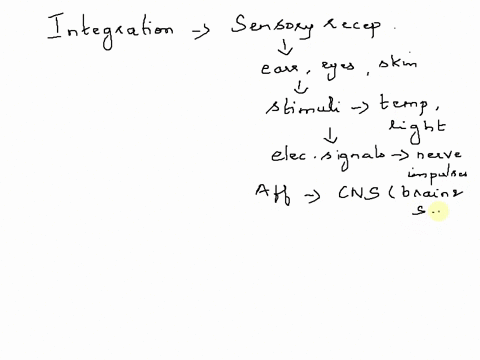 Integration → Sensory recep.
↓
ears, eyes, skin
↓
stimuli → temp,
light
↓
elec. signals → nerve
impulses
Aff → CNS (brain &
s..